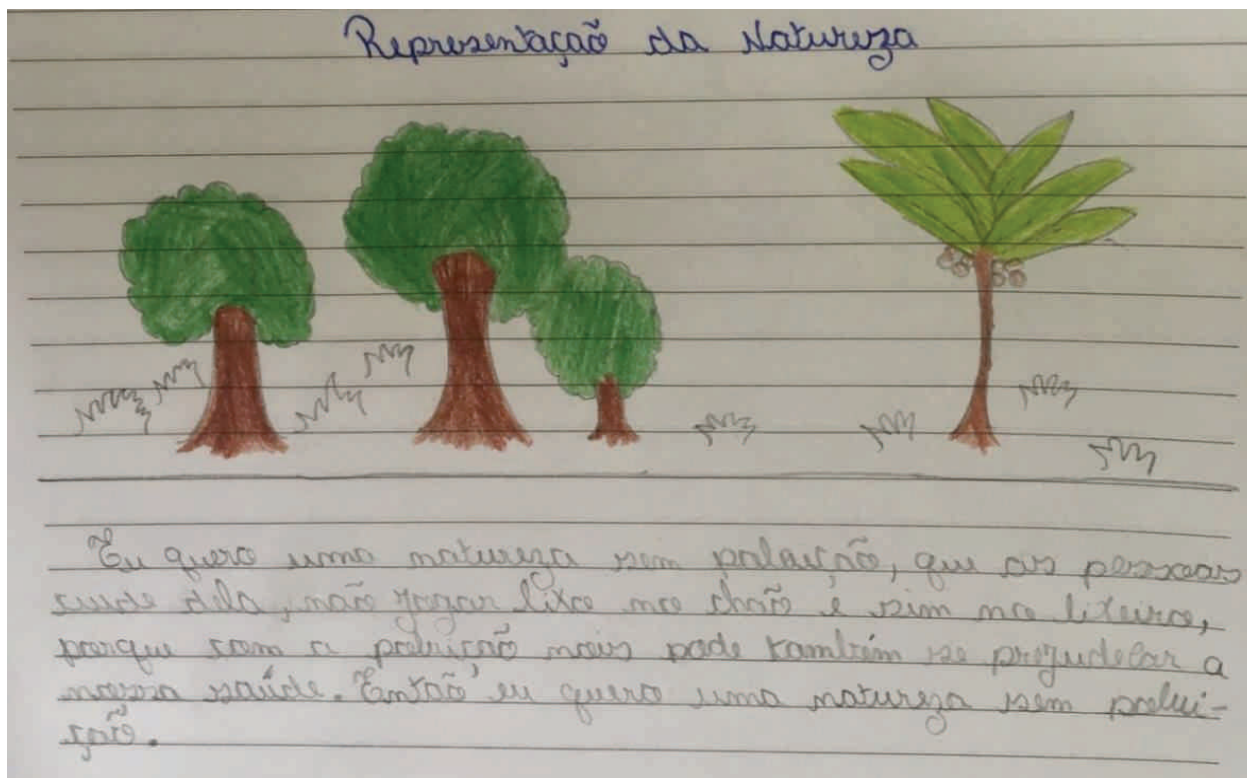 Representação da Natureza
Eu quero uma natureza sem poluição, que as pessoas
cuide dela, não jogar lixo no chão é sim na lixeira,
porque com a poluição mais pode também se prejudicar a
nossa saúde. Então eu quero uma natureza sem polui-
ção.